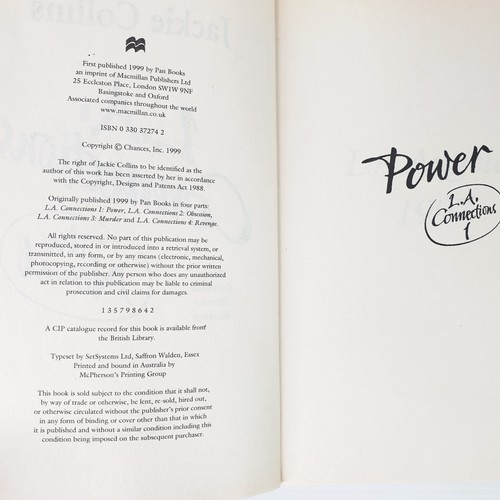 Jackie Collins
First published 1999 by Pan Books
an imprint of Macmillan Publishers Ltd
25 Eccleston Place, London SW1W 9NF
Basingstoke and Oxford
Associated companies throughout the world
www.macmillan.co.uk
ISBN 0 330 37274 2
Copyright © Chances, Inc. 1999
The right of Jackie Collins to be identified as the
author of this work has been asserted by her in accordance
with the Copyright, Designs and Patents Act 1988.
Originally published 1999 by Pan Books in four parts:
L.A. Connections 1: Power, L.A. Connections 2: Obsession,
L.A. Connections 3: Murder and L.A. Connections 4: Revenge.
All rights reserved. No part of this publication may be
reproduced, stored in or introduced into a retrieval system, or
transmitted, in any form, or by any means (electronic, mechanical,
photocopying, recording or otherwise) without the prior written
permission of the publisher. Any person who does any unauthorized
act in relation to this publication may be liable to criminal
prosecution and civil claims for damages.
1 3 5 7 9 8 6 4 2
A CIP catalogue record for this book is available from
the British Library.
Typeset by SetSystems Ltd, Saffron Walden, Essex
Printed and bound in Australia by
McPherson's Printing Group
This book is sold subject to the condition that it shall not,
by way of trade or otherwise, be lent, re-sold, hired out,
or otherwise circulated without the publisher's prior consent
in any form of binding or cover other than that in which
it is published and without a similar condition including this
condition being imposed on the subsequent purchaser.
Power
L.A.
Connections
1